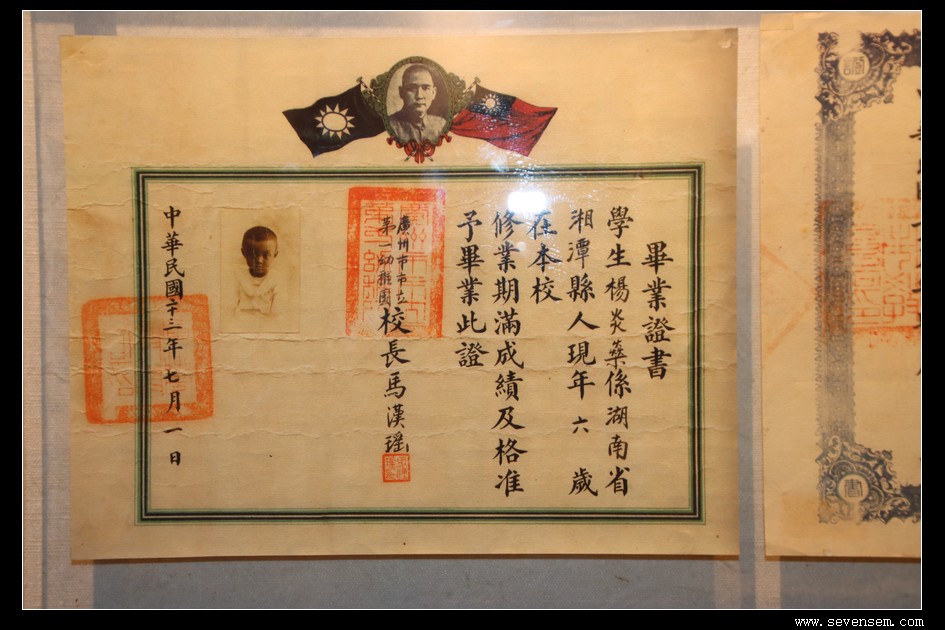 畢業證書
學生楊炎藥係湖南省
湘潭縣人現年六歲
在本校
修業期滿成績及格准
予畢業此證
廣州市市立
第一幼稚園
校長馬漢瑶
中華民國二十三年七月一日
www.sevensem.com